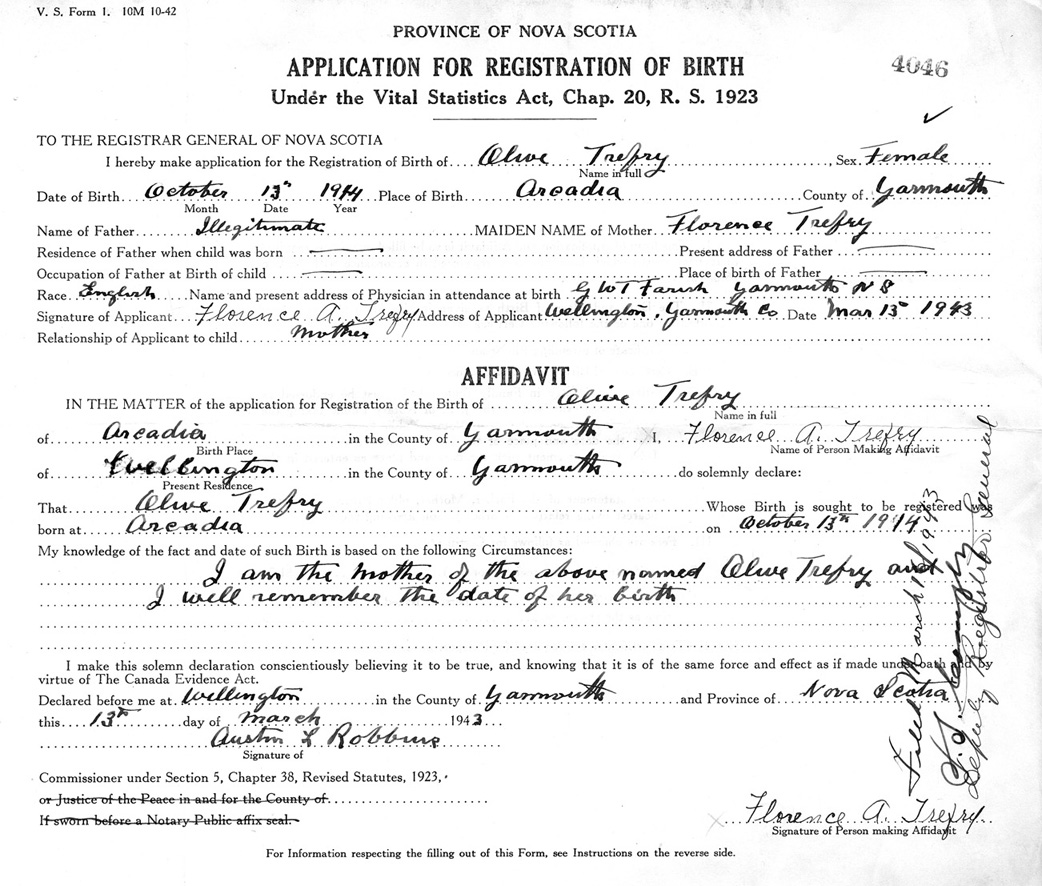 V. S. Form 1. 10M 10-42
PROVINCE OF NOVA SCOTIA
APPLICATION FOR REGISTRATION OF BIRTH
4046
Under the Vital Statistics Act, Chap. 20, R. S. 1923
TO THE REGISTRAR GENERAL OF NOVA SCOTIA
I hereby make application for the Registration of Birth of Olive Trefry, Sex Female
Name in full
Date of Birth October 13th 1914 Place of Birth Arcadia County of Yarmouth
Month Date Year
Name of Father Illegitimate MAIDEN NAME of Mother Florence Trefry
Residence of Father when child was born Present address of Father
Occupation of Father at Birth of child Place of birth of Father
Race English Name and present address of Physician in attendance at birth G W T Farish Yarmouth N S
Signature of Applicant Florence A. Trefry Address of Applicant Wellington, Yarmouth Co. Date Mar 13th 1943
Relationship of Applicant to child mother
AFFIDAVIT
IN THE MATTER of the application for Registration of the Birth of Olive Trefry
Name in full
of Arcadia in the County of Yarmouth I, Florence A. Trefry
Birth Place Name of Person Making Affidavit
of Wellington in the County of Yarmouth do solemnly declare:
Present Residence
That Olive Trefry Whose Birth is sought to be registered was
born at Arcadia on October 13th 1914
My knowledge of the fact and date of such Birth is based on the following Circumstances:
I am the mother of the above named Olive Trefry and
I well remember the date of her birth
I make this solemn declaration conscientiously believing it to be true, and knowing that it is of the same force and effect as if made under oath and by
virtue of The Canada Evidence Act.
Declared before me at Wellington in the County of Yarmouth and Province of Nova Scotia
this 13th day of March 1943
Austin L Robbins
Signature of
Commissioner under Section 5, Chapter 38, Revised Statutes, 1923,
or Justice of the Peace in and for the County of
If sworn before a Notary Public affix seal.
Florence A. Trefry
Signature of Person making Affidavit
For Information respecting the filling out of this Form, see Instructions on the reverse side.
Filed March 1943
Deputy Registrar General